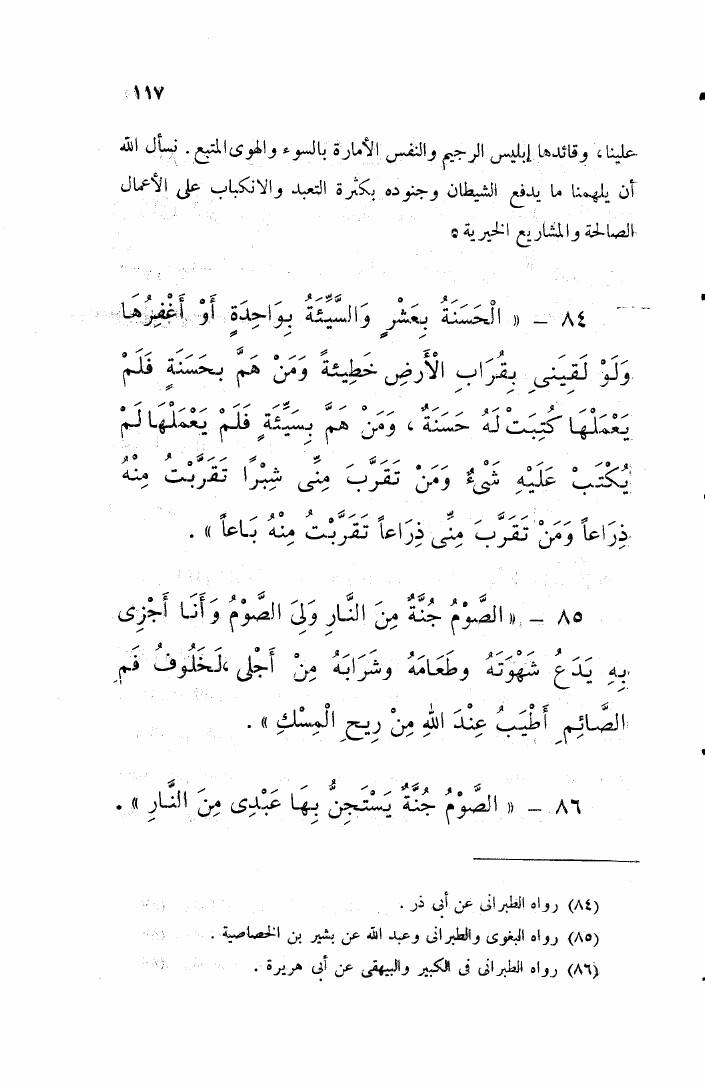 ١١٧
علينا ، وقائدها إبليس الرجيم والنفس الأمارة بالسوء والهوى المتبع . نسأل الله
أن يلهمنا ما يدفع الشيطان وجنوده بكثرة التعبد والانكباب على الأعمال
الصالحة والمشاريع الخيرية ه
٨٤ – « الْحَسَنَةُ بِعَشْرٍ وَالسَّيِّئَةُ بِوَاحِدَةٍ أَوْ أَغْفِرُهَا
وَلَوْ لَقِيَنِى بِقُرَابِ الْأَرْضِ خَطِيئَةً وَمَنْ هَمَّ بِحَسَنَةٍ فَلَمْ
يَعْمَلْهَا كُتِبَتْ لَهُ حَسَنَةٌ ، وَمَنْ هَمَّ بِسَيِّئَةٍ فَلَمْ يَعْمَلْهَا لَمْ
يُكْتَبْ عَلَيْهِ شَىْءٌ وَمَنْ تَقَرَّبَ مِنِّى شِبْرًا تَقَرَّبْتُ مِنْهُ
ذِرَاعاً وَمَنْ تَقَرَّبَ مِنِّى ذِرَاعاً تَقَرَّبْتُ مِنْهُ بَاعاً » .
٨٥ – « الصَّوْمُ جُنَّةٌ مِنَ النَّارِ وَلِىَ الصَّوْمُ وَأَنَا أَجْزِى
بِهِ يَدَعُ شَهْوَتَهُ وطَعَامَهُ وشَرَابَهُ مِنْ أَجْلِى ،لَخَلُوفُ فَمِ
الصَّائِمِ أَطْيَبُ عِنْدَ اللهِ مِنْ رِيحِ الْمِسْكِ » .
٨٦ – « الصَّوْمُ جُنَّةٌ يَسْتَجِنُّ بِهَا عَبْدِى مِنَ النَّارِ » .
(٨٤) رواه الطبرانى عن أبى ذر .
(٨٥) رواه البغوى والطبرانى وعبد الله عن بشير بن الخصاصية .
(٨٦) رواه الطبرانى فى الكبير والبيهقى عن أبى هريرة .